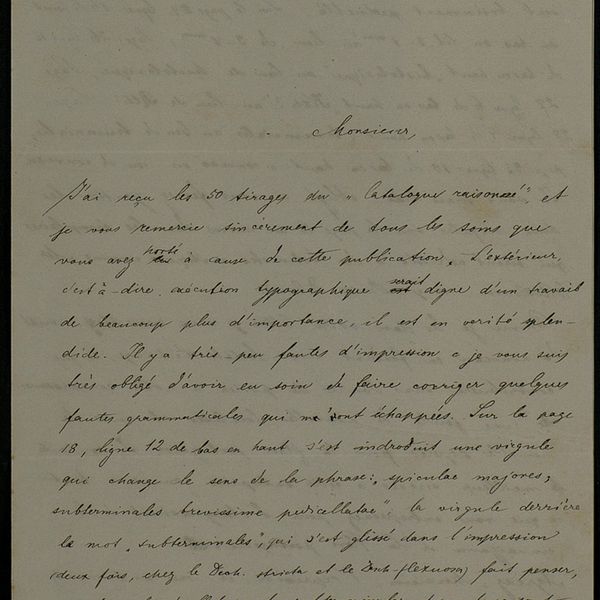 Monsieur,
J'ai reçu les 50 tirages du „Catalogue raisonné", et
je vous remercie sincèrement de tous les soins que
vous avez porté à cause de cette publication. L'extérieur,
c'est à-dire exécution typographique serait digne d'un travail
de beaucoup plus d'importance, il est en verité splen-
dide. Il y a très-peu fautes d'impression e je vous suis
très obligé d'avoir eu soin de faire corriger quelques
fautes grammaticales qui m'ont échappées. Sur la page
18, ligne 12 de bas en haut s'est indroduit une virgule
qui change le sens de la phrase: „spiculae majores,
subterminales brevissime pedicellatae"; la virgule derrière
le mot „subterminales", qui s'est glissé dans l'impression
(deux fois, chez le Desch. stricta et le Desch. flexuosa) fait penser,